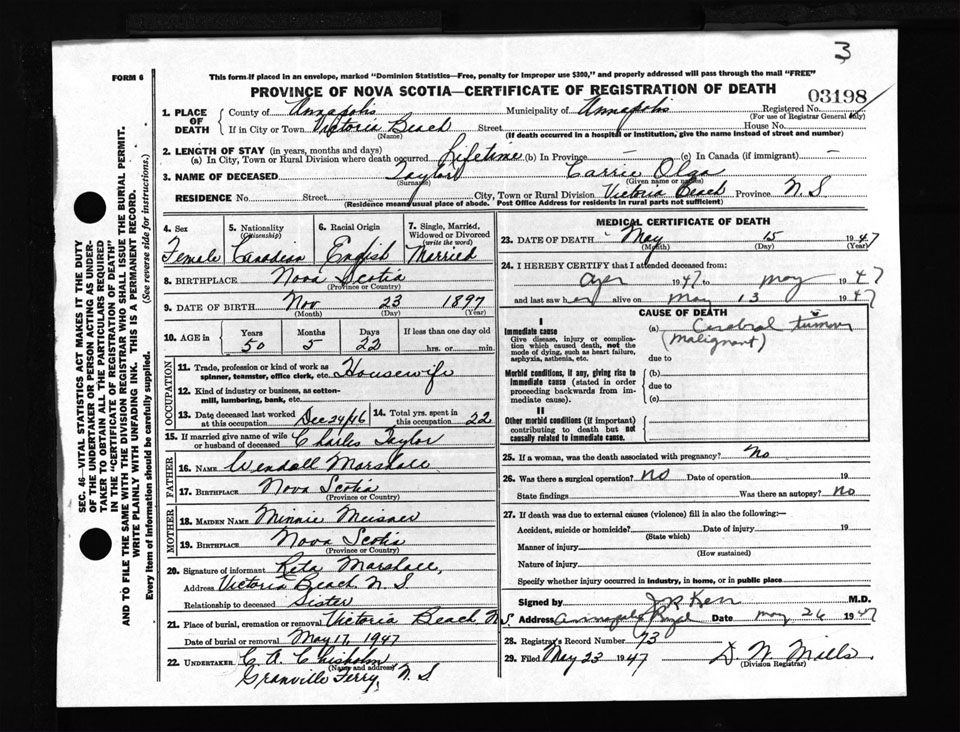 3
FORM 6
This form if placed in an envelope, marked "Dominion Statistics—Free, penalty for improper use $300," and properly addressed will pass through the mail "FREE"
PROVINCE OF NOVA SCOTIA—CERTIFICATE OF REGISTRATION OF DEATH
03198
SEC. 46—VITAL STATISTICS ACT MAKES IT THE DUTY
OF THE UNDERTAKER OR PERSON ACTING AS UNDER-
TAKER TO OBTAIN ALL THE PARTICULARS REQUIRED
IN THE "CERTIFICATE OF REGISTRATION OF DEATH"
AND TO FILE THE SAME WITH THE DIVISION REGISTRAR WHO SHALL ISSUE THE BURIAL PERMIT.
WRITE PLAINLY WITH UNFADING INK. THIS IS A PERMANENT RECORD.
Every item of information should be carefully supplied. (See reverse side for instructions.)
1. PLACE OF DEATH
County of Annapolis Municipality of Annapolis Registered No.
(For use of Registrar General only)
If in City or Town Victoria Beach Street House No.
(Name) (If death occurred in a hospital or institution, give the name instead of street and number)
2. LENGTH OF STAY (in years, months and days)
(a) In City, Town or Rural Division where death occurred Lifetime (b) In Province — (c) In Canada (if immigrant) —
3. NAME OF DECEASED Taylor Carrie Olga
(Surname) (Given name or names)
RESIDENCE No. Street City, Town or Rural Division Victoria Beach Province N. S
(Residence means usual place of abode. Post Office Address for residents in rural parts not sufficient)
4. Sex Female
5. Nationality (Citizenship) Canadian
6. Racial Origin English
7. Single, Married, Widowed or Divorced (write the word) Married
8. BIRTHPLACE Nova Scotia
(Province or Country)
9. DATE OF BIRTH Nov 23 1897
(Month) (Day) (Year)
10. AGE in Years 50 Months 5 Days 22 If less than one day old hrs. or min.
OCCUPATION
11. Trade, profession or kind of work as spinner, teamster, office clerk, etc. Housewife
12. Kind of industry or business, as cotton-mill, lumbering, bank, etc.
13. Date deceased last worked at this occupation Dec 24/46
14. Total yrs. spent in this occupation 22
15. If married give name of wife or husband of deceased Charles Taylor
FATHER
16. NAME Wendall Marshall
17. BIRTHPLACE Nova Scotia
(Province or Country)
MOTHER
18. MAIDEN NAME Minnie Meisner
19. BIRTHPLACE Nova Scotia
(Province or Country)
20. Signature of informant Reta Marshall,
Address Victoria Beach, N S
Relationship to deceased Sister
21. Place of burial, cremation or removal Victoria Beach, N S.
Date of burial or removal May 17, 1947
22. UNDERTAKER C. A. Chisholm
(Name and address)
Granville Ferry, N. S
MEDICAL CERTIFICATE OF DEATH
23. DATE OF DEATH May 15 1947
(Month) (Day) (Year)
24. I HEREBY CERTIFY that I attended deceased from:
Apr 1947 to May 1947
and last saw her alive on May 13 1947
CAUSE OF DEATH
I
Immediate cause
Give disease, injury or complication which caused death, not the mode of dying, such as heart failure, asphyxia, asthenia, etc.
(a) Cerebral tumour
(malignant)
due to
Morbid conditions, if any, giving rise to immediate cause (stated in order proceeding backwards from immediate cause).
(b)
due to
(c)
II
Other morbid conditions (if important) contributing to death but not causally related to immediate cause.
25. If a woman, was the death associated with pregnancy? No
26. Was there a surgical operation? NO Date of operation 19
State findings Was there an autopsy? No
27. If death was due to external causes (violence) fill in also the following:—
Accident, suicide or homicide? Date of injury 19
(State which)
Manner of injury
(How sustained)
Nature of injury
Specify whether injury occurred in industry, in home, or in public place
Signed by J R Kerr M.D.
Address Annapolis Royal Date May 26 1947
28. Registrar's Record Number 73
29. Filed May 23 1947 D. W. Mills.
(Division Registrar)